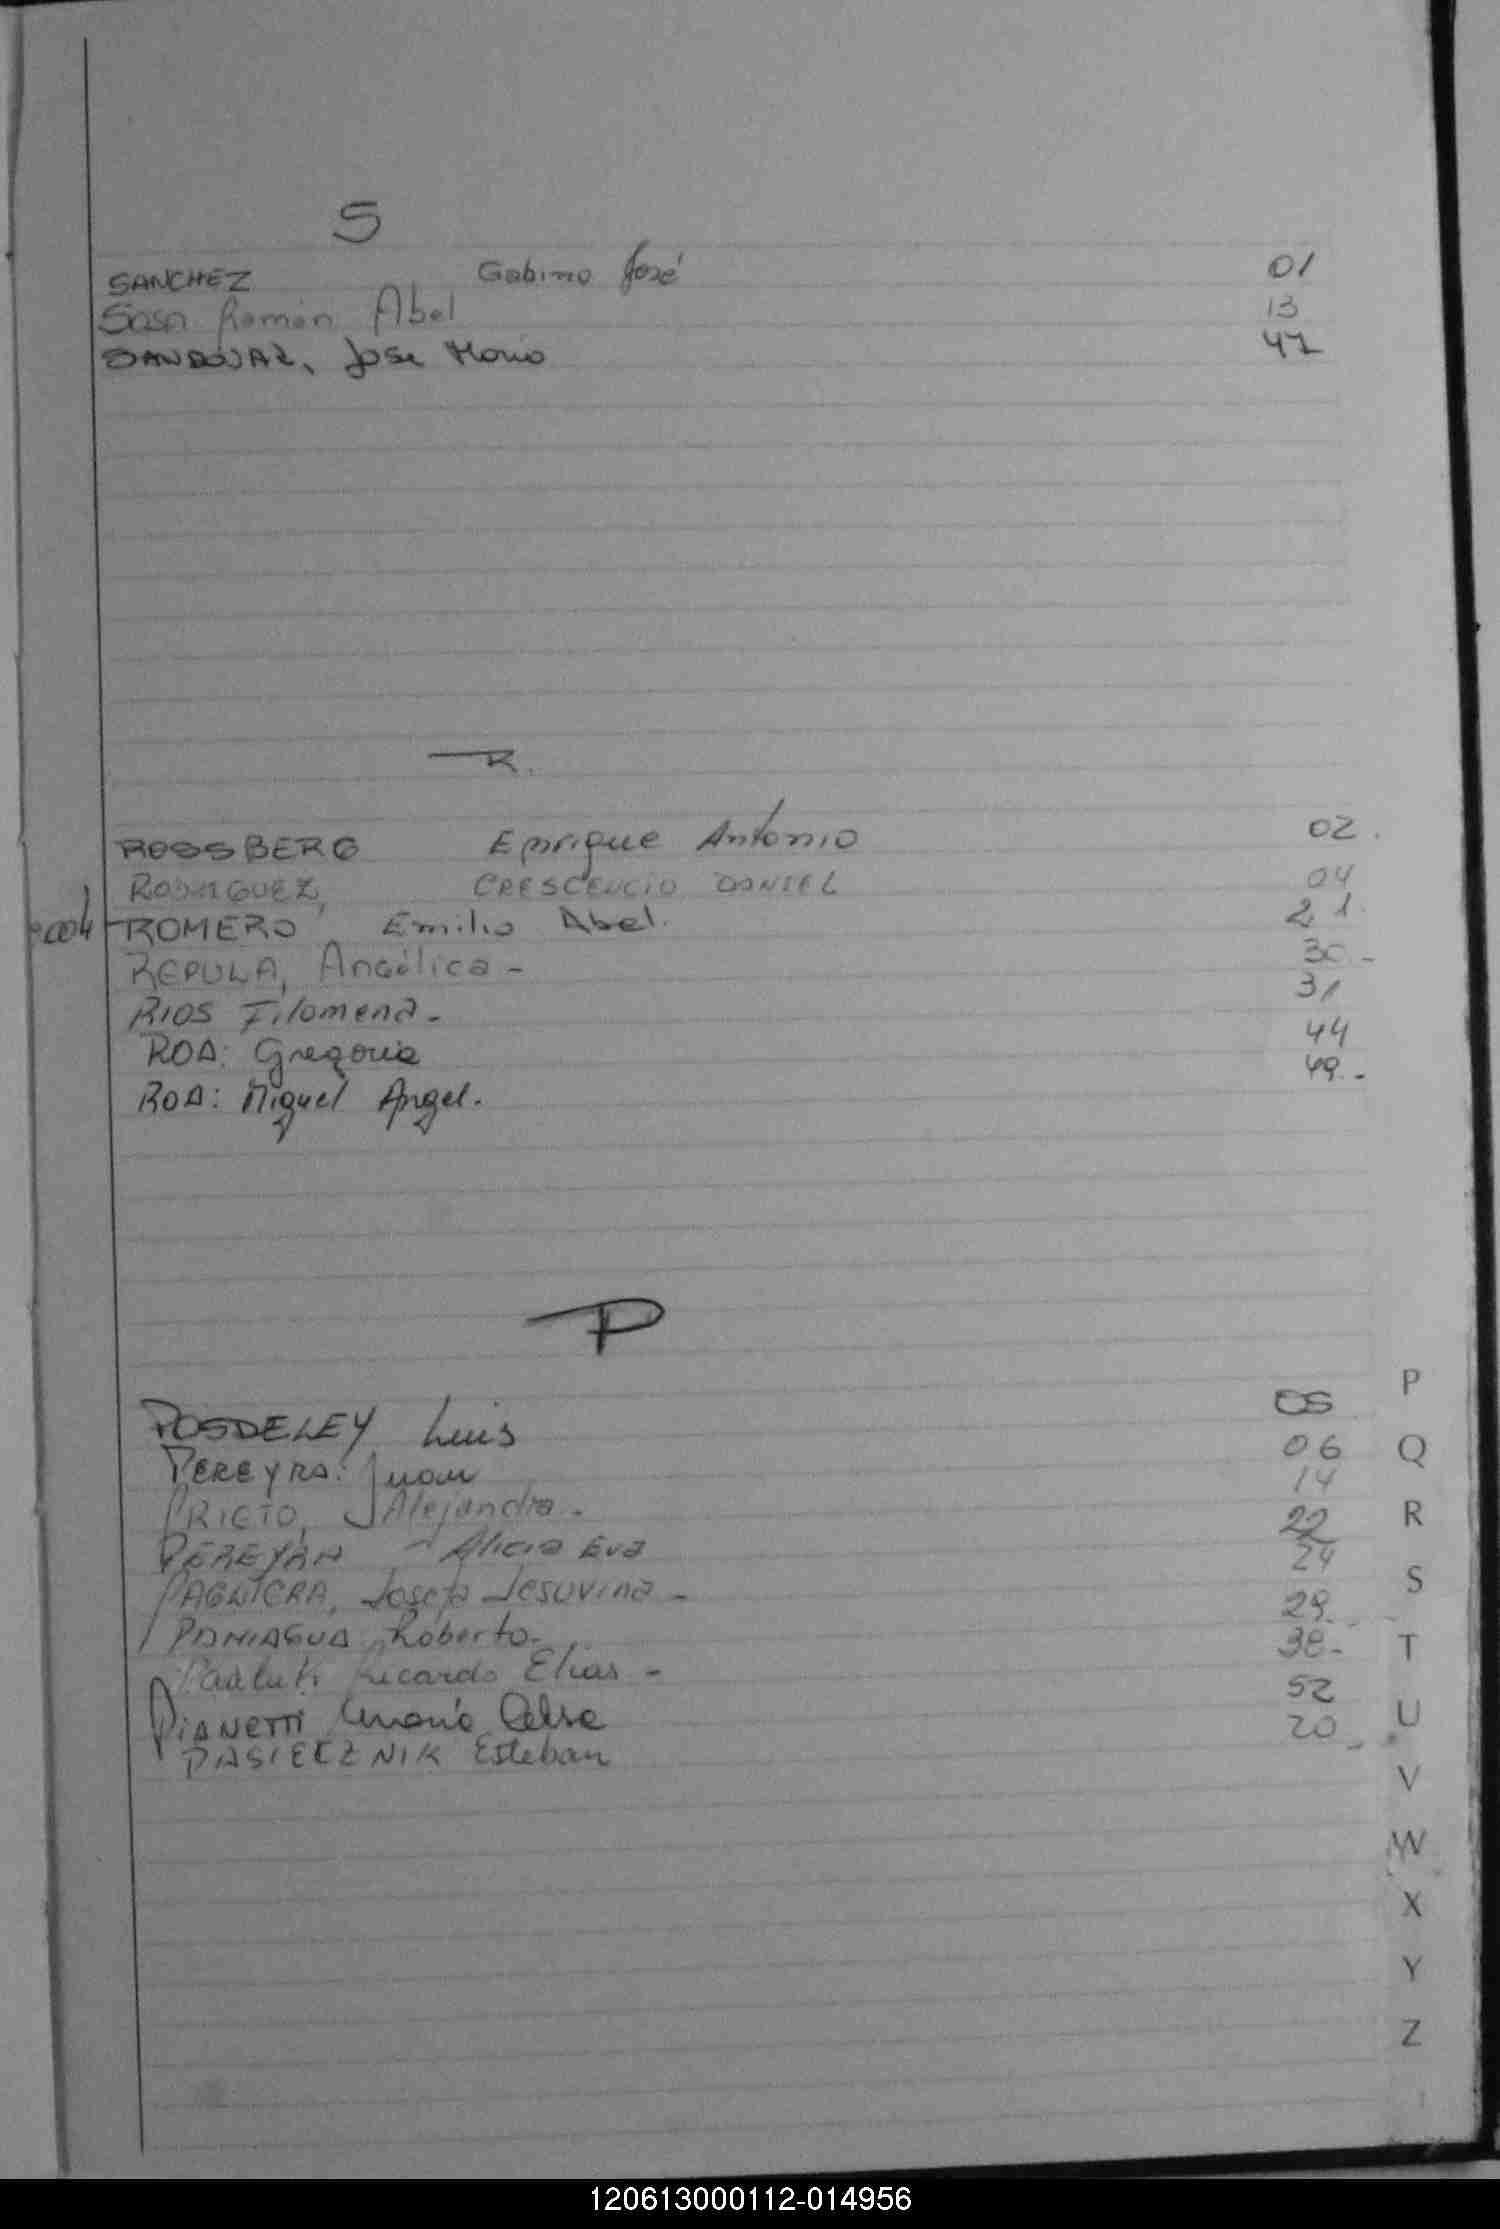 S
SANCHEZ Gabino José 01
Sosa Ramon Abel 13
SANDOVAL, Jose Mario 47
R.
ROSSBERG Enrique Antonio 02.
RODRIGUEZ, CRESCENCIO DANIEL 04
ROMERO Emilio Abel. 21.
REPULA, Angélica - 30-
RIOS Filomena. 31
ROA: Gregoria 44
ROA: Miguel Angel. 49.-
P
POSDELEY Luis 05
PEREYRA: Juan 06
PRIETO, Alejandra. 14
PEREYRA Alicia Eva 22
Josefa Jesuvina - 24
PANIAGUA Roberto. 29.
Ricardo Elias - 38-
PIANETTI María Celsa 52
PASIECZNIK Esteban 20
P
Q
R
S
T
U
V
W
X
Y
Z
120613000112-014956